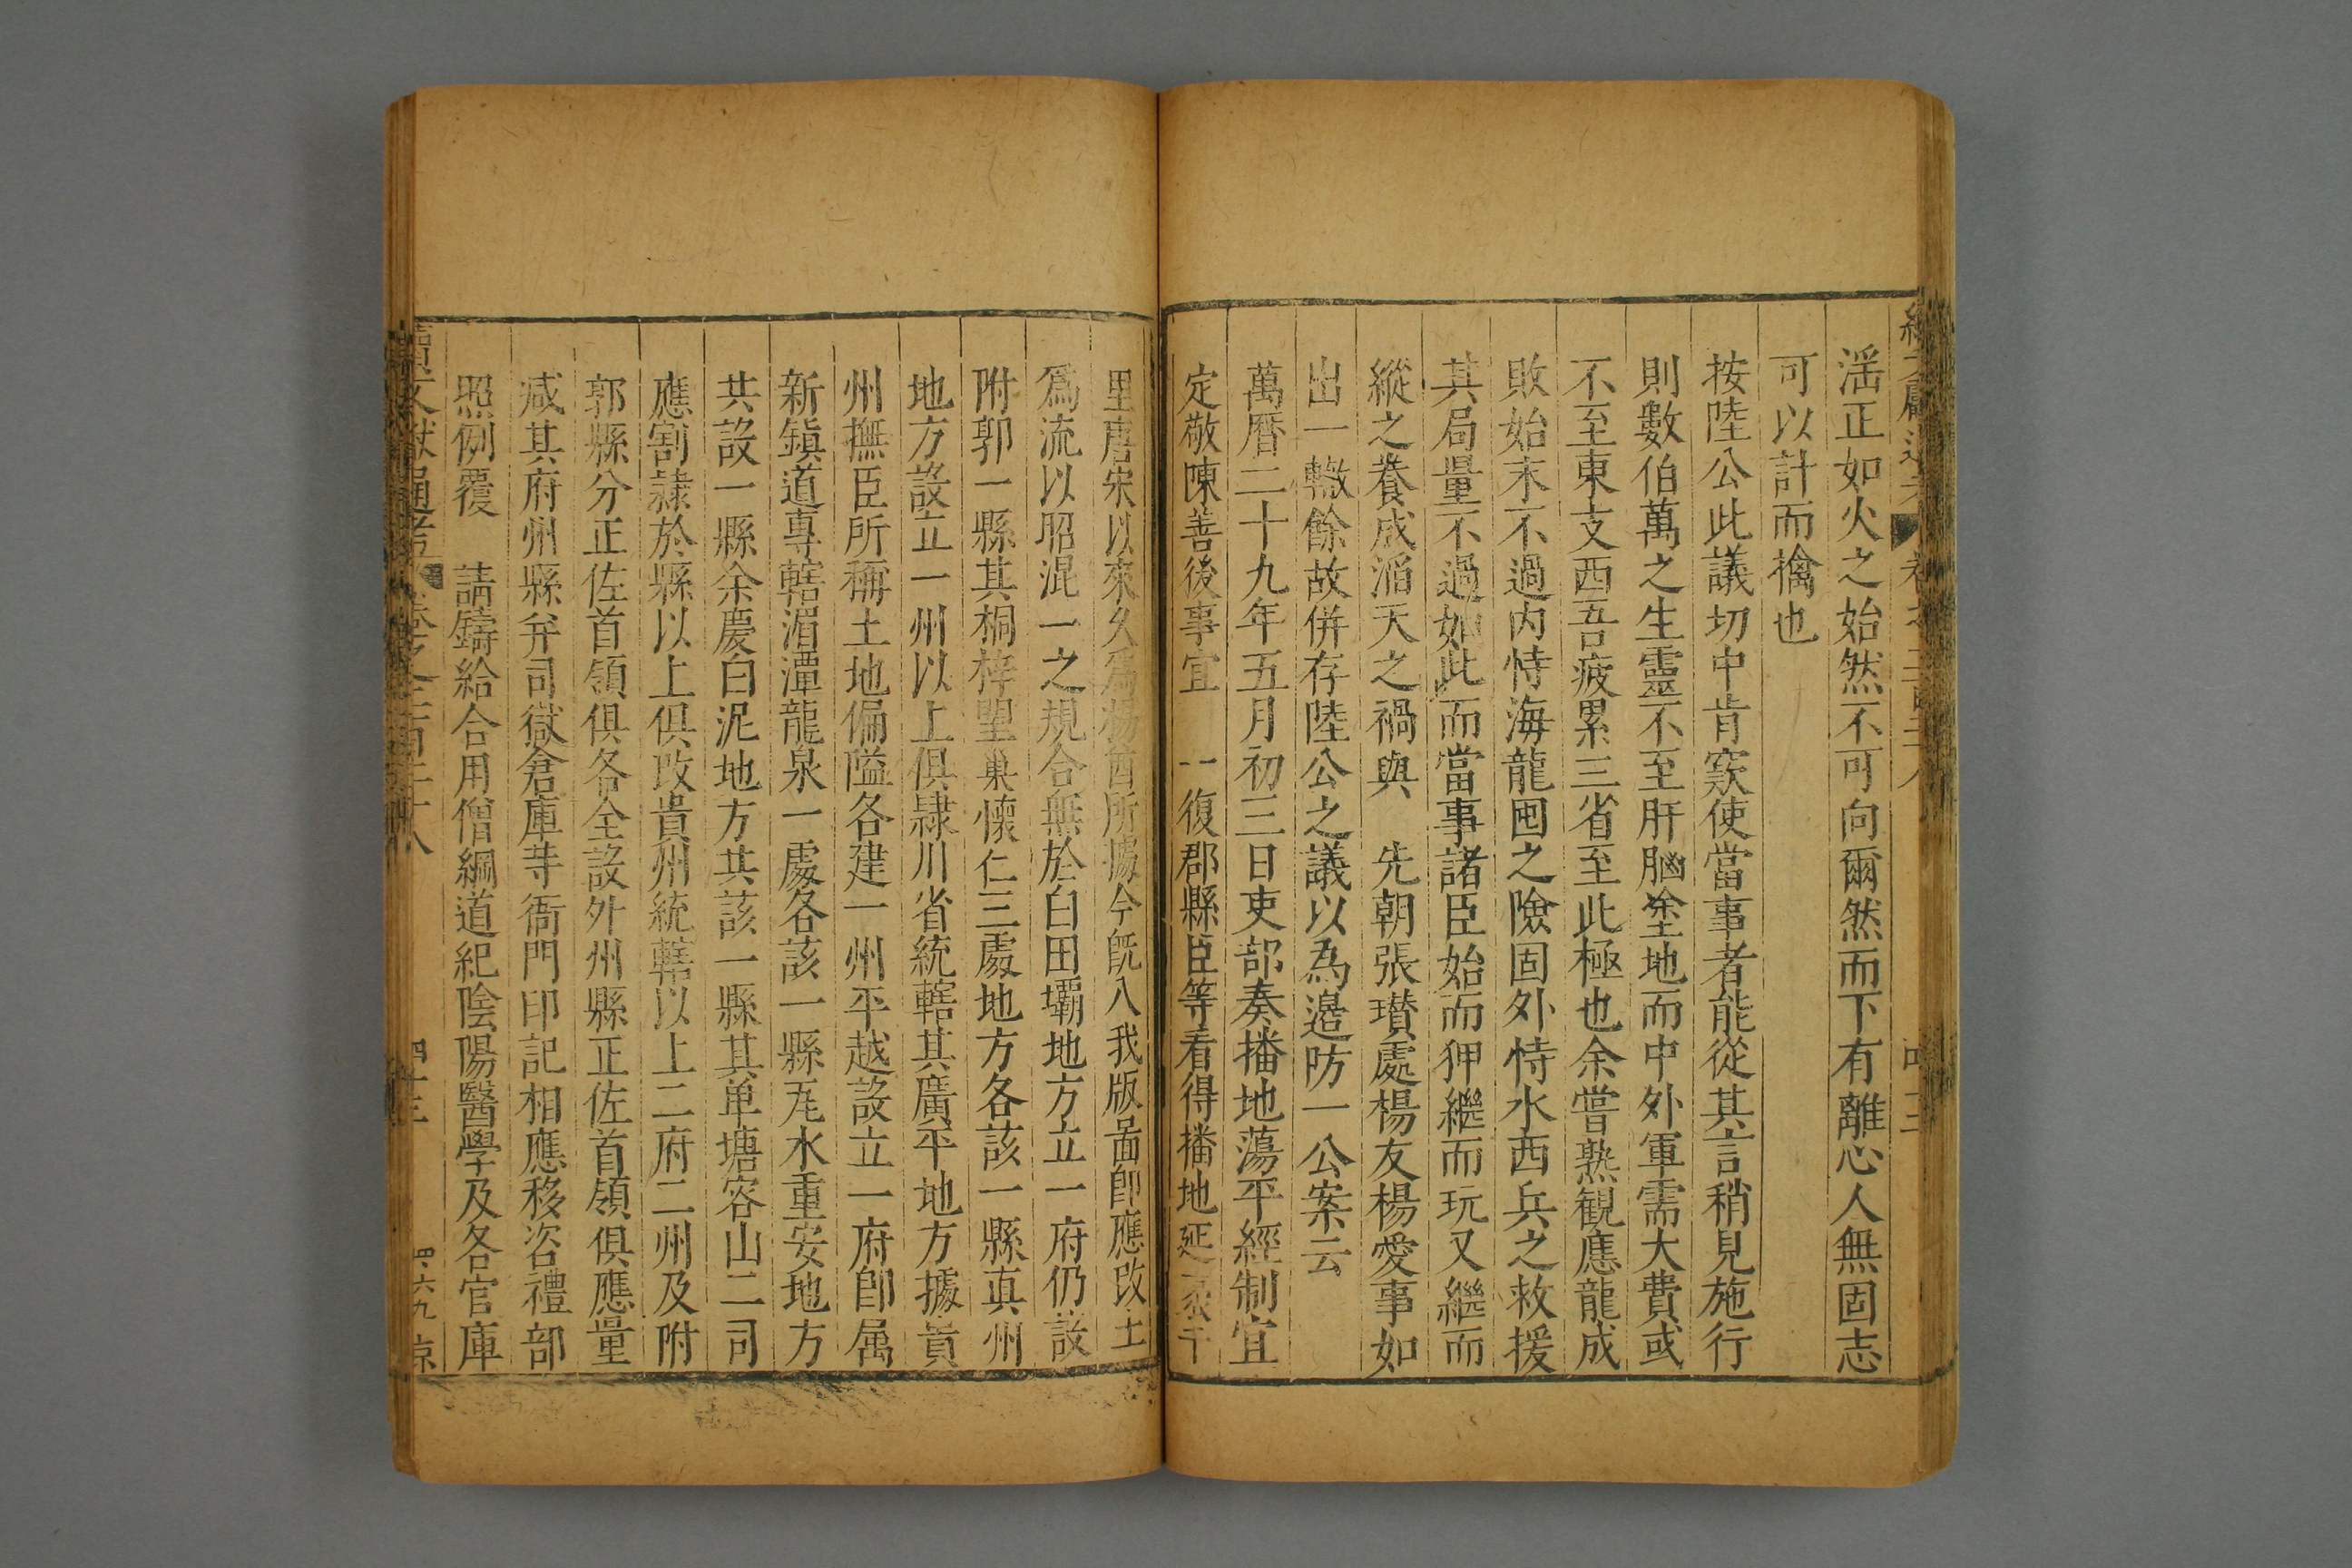 淫正如火之始然不可向爾然而下有離心人無固志
可以計而擒也
按陸公此議切中肯窾使當事者能從其言稍見施行
則數伯萬之生靈不至肝腦塗地而中外軍需大費或
不至東支西吾疲累三省至此極也余嘗熟観應龍成
敗始末不過内恃海龍囤之險固外恃水西兵之救援
其局量不過如此而當事諸臣始而狎繼而玩又繼而
縱之養成滔天之禍與 先朝張瓚處楊友楊愛事如
出一轍餘故併存陸公之議以為邉防一公案云
萬曆二十九年五月初三日吏部奏播地蕩平經制宜
定敬陳善後事宜 一復郡縣臣等看得播地延袤千
里唐宋以來久爲楊酋所據今旣入我版啚即應改土
爲流以昭混一之規合無於白田壩地方立一府仍設
附郭一縣其桐梓望巢懷仁三處地方各該一縣真州
地方設立一州以上俱隷川省統轄其廣平地方據貴
州撫臣所稱土地偏隘各建一州平越設立一府即属
新鎮道專轄湄潭龍泉一處各該一縣瓮水重安地方
共設一縣余慶白泥地方共該一縣其单塘容山二司
應割隷於縣以上俱改貴州統轄以上二府二州及附
郭縣分正佐首領俱各全設外州縣正佐首領俱應量
咸其府州縣弁司獄倉庫䓁衙門印記相應移咨禮部
照例覆 請鑄給合用僧綱道紀陰陽醫學及各官庫
續文獻通考 卷之二百三十八 四十三